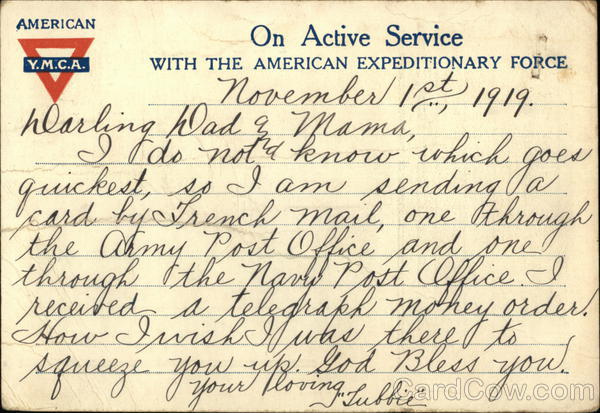 AMERICAN
Y.M.C.A.
On Active Service
WITH THE AMERICAN EXPEDITIONARY FORCE
November 1st, 1919.
Darling Dad & Mama,
I do not know which goes
quickest, so I am sending a
card by French mail, one through
the Army Post Office and one
through the Navy Post Office. I
received a telegraph money order.
How I wish I was there to
squeeze you up. God Bless you.
Your loving
"Tubbie"
CardCow.com